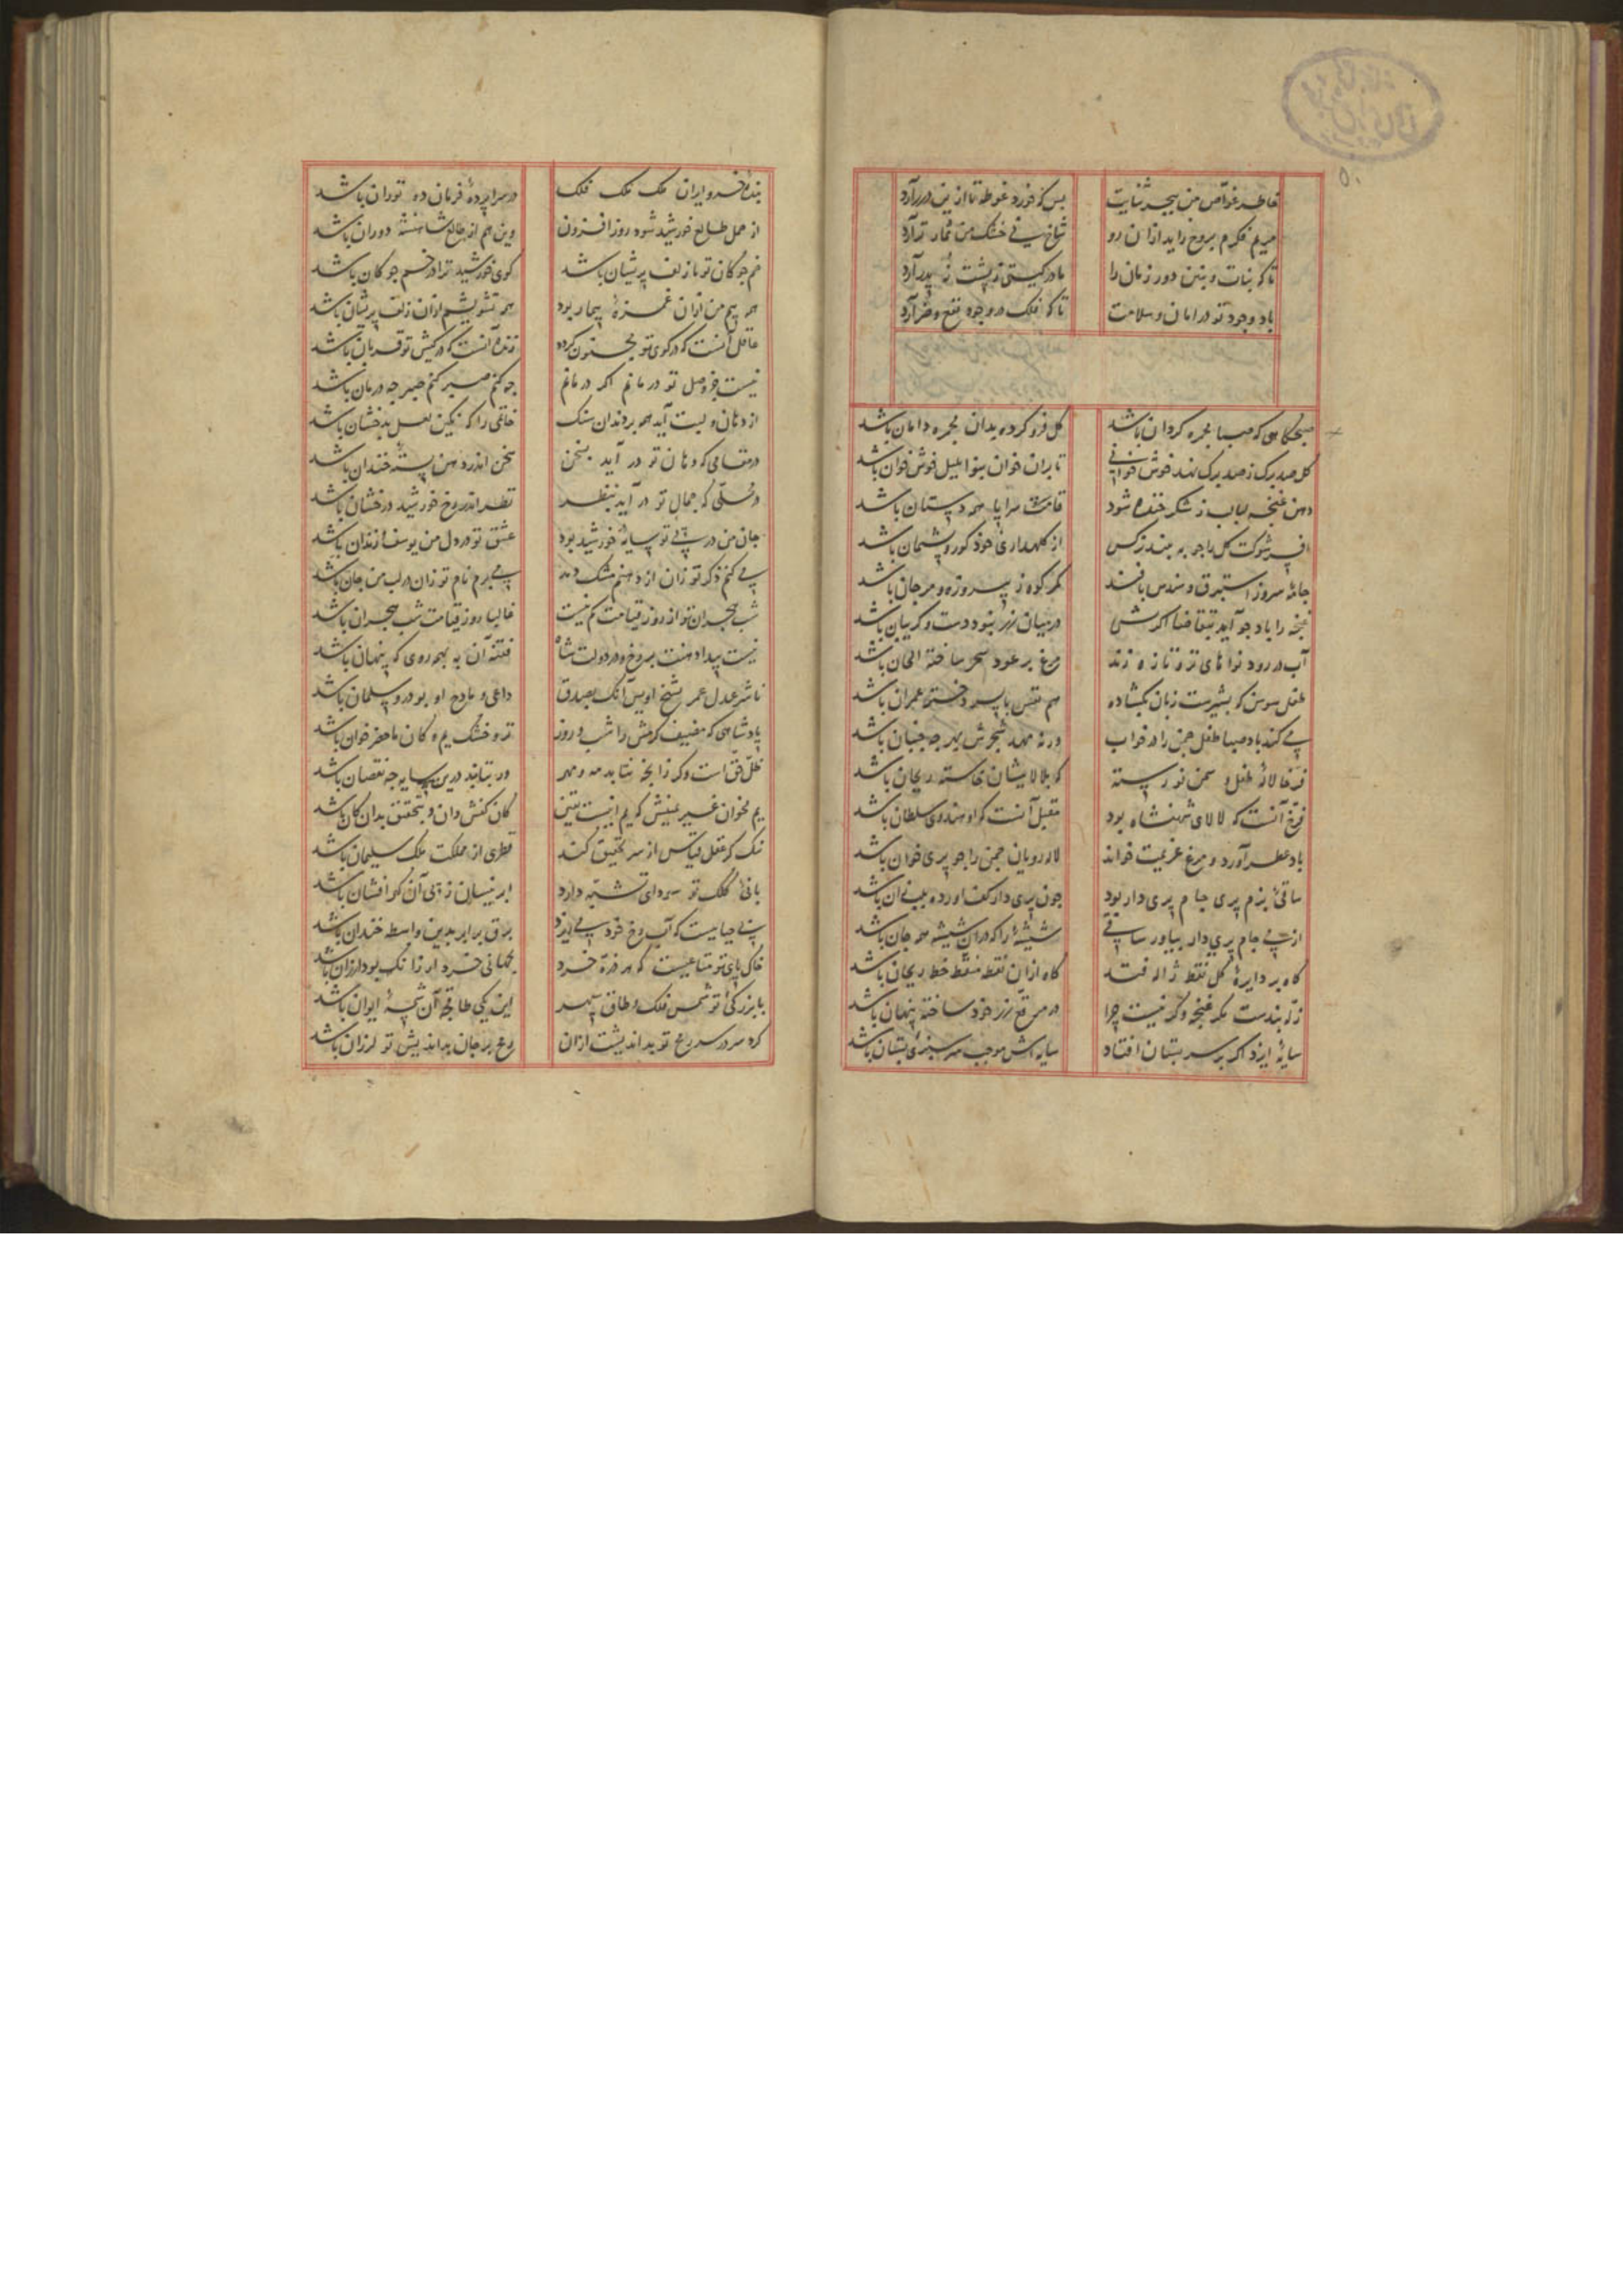 خاطر غواص من ببحر ثنایت بس که خورد غوطه تا ازین درر آرد
مریم فکرم بروح زاید ازان رو شاخ نی خشک من ثمار تر آرد
تا که بنات و بنین دور زمان را مادر کیتی ز پشت پدر آرد
باد وجود تو در امان و سلامت تا که فلک در وجود نفع و ضر آرد
صبحکاهی که صبا مجمره کردان باشد کل فرو کرده بدان مجمره دامان باشد
کل صد برک ز صد برک نهد خوش خوانی تا بران خوان بنوا بلبل خوش خوان باشد
دهن غنچه لبالب ز شکر خنده شود قامت سراپا همه دستان باشد
افسر شوکت کل را چو ببیند نرکس از کلهداری خود کور و پشیمان باشد
جامه سرو ز استبرق و سندس بافند کمر کوه ز پیروزه و مرجان باشد
غنچه را باد چو آید بتقاضا اکرش در میان زر نبود دست و کریبان باشد
آب در رود نواهای تر و تازه زند مرغ بر عود سحر ساخته الحان باشد
طفل سوسن که بشیرست زبان بکشاده هم نفس با پسر دختر عمران باشد
می کند باد صبا طفل چمن را در خواب ورنه مهد شجرش بهر چه جنبان باشد
فرخا لاله طفل و سمن نورسته که بلالایشان خاسته ریحان باشد
فرخ آنست که لالای شهنشاه بود مقبل آنست که او هندوی سلطان باشد
باد عطر آورد و مرغ عزیمت خواند لاله رویان چمن را چو پری خوان باشد
ساقی بزم پری جام پری دار بود چون پری دار کف آورده بلب زان باشد
از پی جام پری دار بیاور ساقی شیشه را که دران شیشه همه جان باشد
کاه بر دایره کل نقط ژاله فتد کاه ازان نقطه منقط خط ریحان باشد
زله بندست مکر غنچه وکر نیست چرا در مرقع زر خود ساخته پنهان باشد
سایه ایزد اکر بر سر بستان افتاد سایه اش موجب سر سبزی بستان باشد
بنده خسرو ایران ملک ملک فلک در سراپرده فرمان ده توران باشد
از حمل طالع خورشید شود روز افزون وین هم از طالع شاهنشه دوران باشد
خم چوکان تو با زلف پریشان باشد کوی خورشید ترا در خم چوکان باشد
همه بیم من ازان غمزه بیمار بود همه تشویشم ازان زلف پریشان باشد
عاقل آنست که در کوی تو مجنون کردد زنده آنست که در کیش تو قربان باشد
نیست جز وصل تو درمانم اکر درمانم چه کنم صبر کنم صبر چه درمان باشد
از دهان و لبت آید همه بر دندان سنک خاتمی را که نکین لعل بدخشان باشد
در مقامی که دهان تو در آید بسخن سخن اندر دهن پسته خندان باشد
در محلی که جمال تو در آید بنظر نظر اندر رخ خورشید درخشان باشد
جان من در پی تو سایه خورشید بود عشق تو در دل من یوسف و زندان باشد
می کنم ذکر تو زان از دهنم مشک دمد می برم نام تو زان در لب من جان باشد
شب هجران تو از روز قیامت کم نیست غالبا روز قیامت شب هجران باشد
نیست پیدا دهنت بر رخ و در دولت شاه فتنه آن به همه روی که پنهان باشد
ناشر عدل عمر شیخ اویس آنک بصدق داعی و مادح او بوذر و سلمان باشد
پادشاهی که مضیف کرمش را شب و روز تر و خشک یم و کان ماحضر خوان باشد
ظل حق است وکر زانچه نتابد مه و مهر ور بتابند درین سایه چه نقصان باشد
یم مخوان غیر یمینش که یم اینست یقین کان کفش دان و بتحقیق بدان کان باشد
نیک کر عقل قیاس از سر تحقیق کند قطری از مملکت ملک سلیمان باشد
بانی کلک تو سودای تشبه دارد ابر نیسان ز پی آن کهر افشان باشد
بی حیاییست که آب رخ خود می ریزد برق بر ابر بدین واسطه خندان باشد
خاک پای تو متاعیست که هر ذره خرد بجهانی خرد ار زانک بود ارزان باشد
با بزرکی تو شمس فلک و طاق سپهر این یکی طاقچه آن شمسه ایوان باشد
کرد سر در سر رمح تو بداندیشت ازان رمح بر جان بداندیش تو لرزان باشد